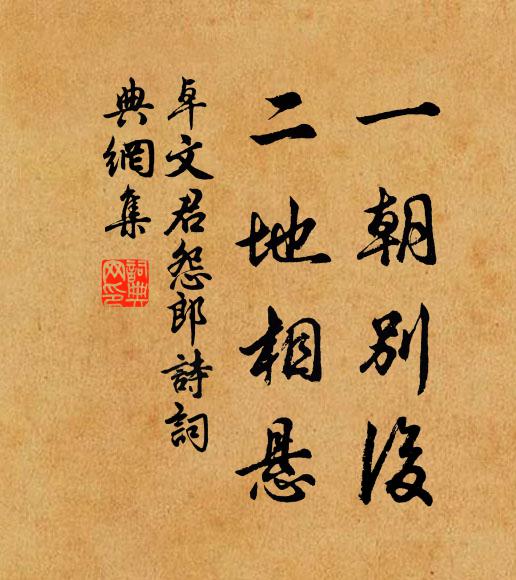 一朝別後
二地相悬
卓文君怨郎詩詞
典網集
詞典
网印